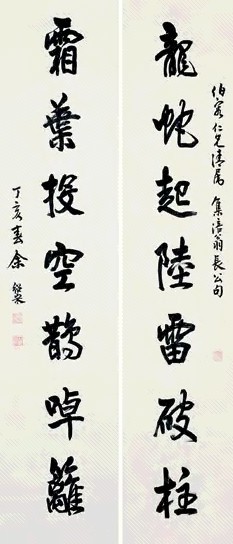 伯寅仁兄清属 集涪翁长公句
龍蛇起陸雷破柱
霜葉投空鵲啅籬
丁亥春 余